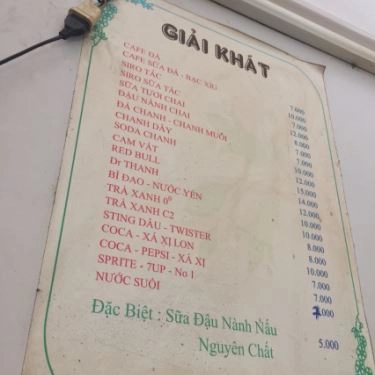 GIẢI KHÁT
CAFE ĐÁ 7.000
CAFE SỮA ĐÁ - BẠC XIU 10.000
SIRO TẮC 7.000
SIRO SỮA TẮC 12.000
SỮA TƯƠI CHAI 8.000
ĐẬU NÀNH CHAI 7.000
ĐÁ CHANH - CHANH MUỐI 7.000
CHANH DÂY 10.000
SODA CHANH 12.000
CAM VẮT 15.000
RED BULL 14.000
Dr THANH 12.000
BÍ ĐAO - NƯỚC YẾN 10.000
TRÀ XANH 0⁰ 10.000
TRÀ XANH C2 8.000
STING DÂU - TWISTER 10.000
COCA - XÁ XỊ LON 10.000
COCA - PEPSI - XÁ XỊ 7.000
SPRITE - 7UP - No 1 7.000
NƯỚC SUỐI 7.000
Đặc Biệt : Sữa Đậu Nành Nấu
Nguyên Chất 5.000